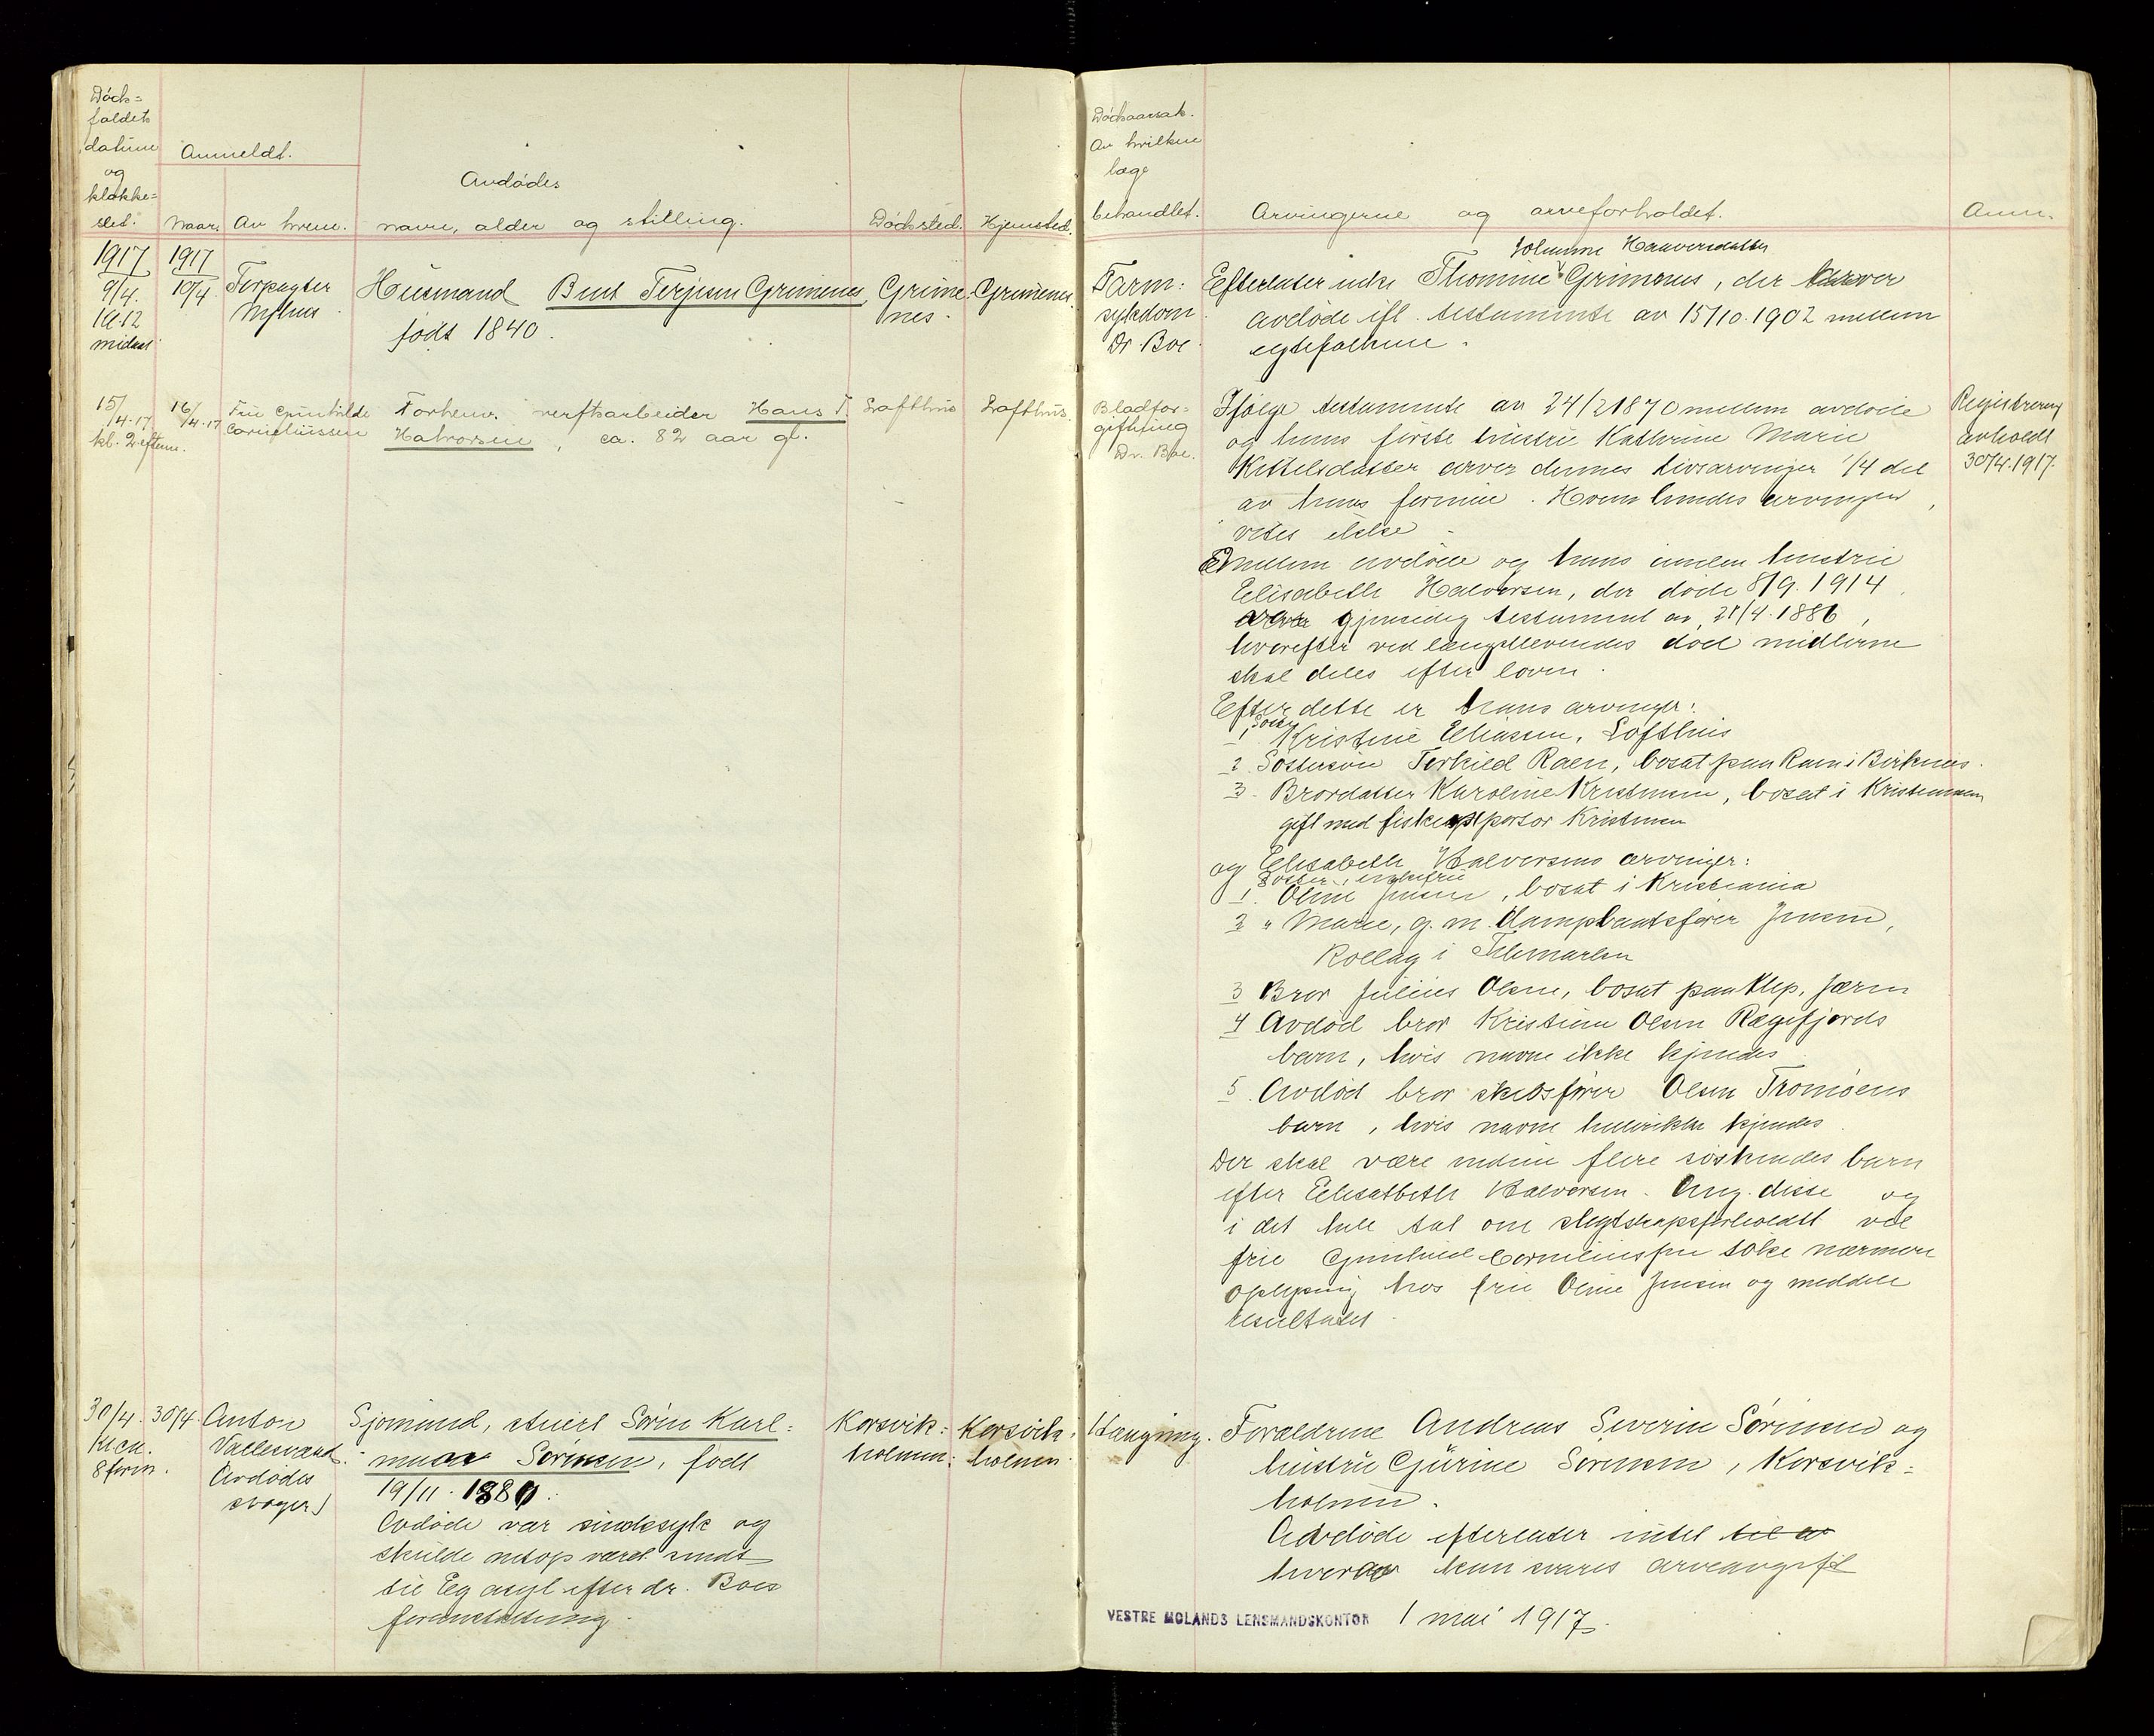 Döds=
faldets
datum
og
klokke=
slet.
Anmeldt.
Naar.
Av hvem.
Avdödes
navn, alder og stilling.
Dödssted.
Hjemsted.
Dödsaarsak.
Av hvilken
læge
behandlet.
Arvingerne og arveforholdet.
Anm.
1917
9/4.
kl. 12
midnat
1917
10/4
Forpagter
Husmand Bent Terjesen Grimenes,
födt 1840.
Grime-
nes.
Grimenes.
Tarm:
sykdom.
Dr. Boe.
Johanne Haaversdatter
Efterlater enke Thomine Grimenes, der arver
avdöde ifl. testamente av 15/10.1902 mellem
egtefolkene.
15/4.17
kl. 2 efterm.
16/4.17
Fru Gunhilde
Corneliussen
Forhenv. verftsarbeider Hans T.
Halvorsen, ca. 82 aar gl.
Lofthus
Lofthus.
Blodfor-
giftning
Dr. Boe.
Ifölge testamente av 24/2 1870 mellem avdöde
og hans förste hustru Kathrine Marie
Kittelsdatter arver dennes livsarvinger 1/4 del
av hans formue. Hvem hendes arvinger
vites ikke.
Mellem avdöde og hans anden hustru
Elisabeth Halvorsen, der döde 8/9.1914
gjensidig testament av 21/4.1886,
hvorefter ved længstlevendes död midlerne
skal deles efter loven.
Efter dette er hans arvinger:
1 Söster Kristine Eliassen, Lofthus
2 Söstersön Terkild Raen, bosat paa Raen i Birkenes.
3. Brordatter Karoline Kristensen, bosat i Kristianssand
gift med fiskeexportör Kristensen
og Elisabeth Halvorsens arvinger:
Söster, enkefru
1. Oline Jensen, bosat i Kristiania
2 " Marie, g. m. dampbaatsförer Jensen,
Rollag i Thelemarken
3 Bror Julius Olsen, bosat paa Klep, Jæren
4 Avdöd bror Kristian Olsen Rægefjords
barn, hvis navne ikke kjendes
5. Avdöd bror skibsförer Olsen Tromöens
barn, hvis navne heller ikke kjendes.
Der skal være endnu flere söskendes barn
efter Elisabeth Halvorsen. Ang. disse og
i det hele tat om slegtskapsforholdet vil
fru Gunhild Corneliussen söke nærmere
oplysning hos fru Oline Jensen og meddele
resultatet.
Registrering
avholdt
30/4.1917.
30/4.
Kl. ca.
8 form.
30/4.
Anton
Vallesverd
Avdödes
svoger)
Sjömand, ugift Sörin Karl=
Sörensen, födt
19/11.1880.
Avdöde var sindssyk og
skulde netop været sendt
til Eg asyl efter dr. Boes
foranstaltning.
Korsvik=
holmen.
Korsvik=
holmen.
Hængning.
Forældrene Andreas Severin Sörensen og
hustru Gurine Sörensen, Korsvik=
holmen.
Avdöde efterlater intet til av
hvorav kan svares arveavgift
VESTRE MOLANDS LENSMANDSKONTOR 1 mai 1917.